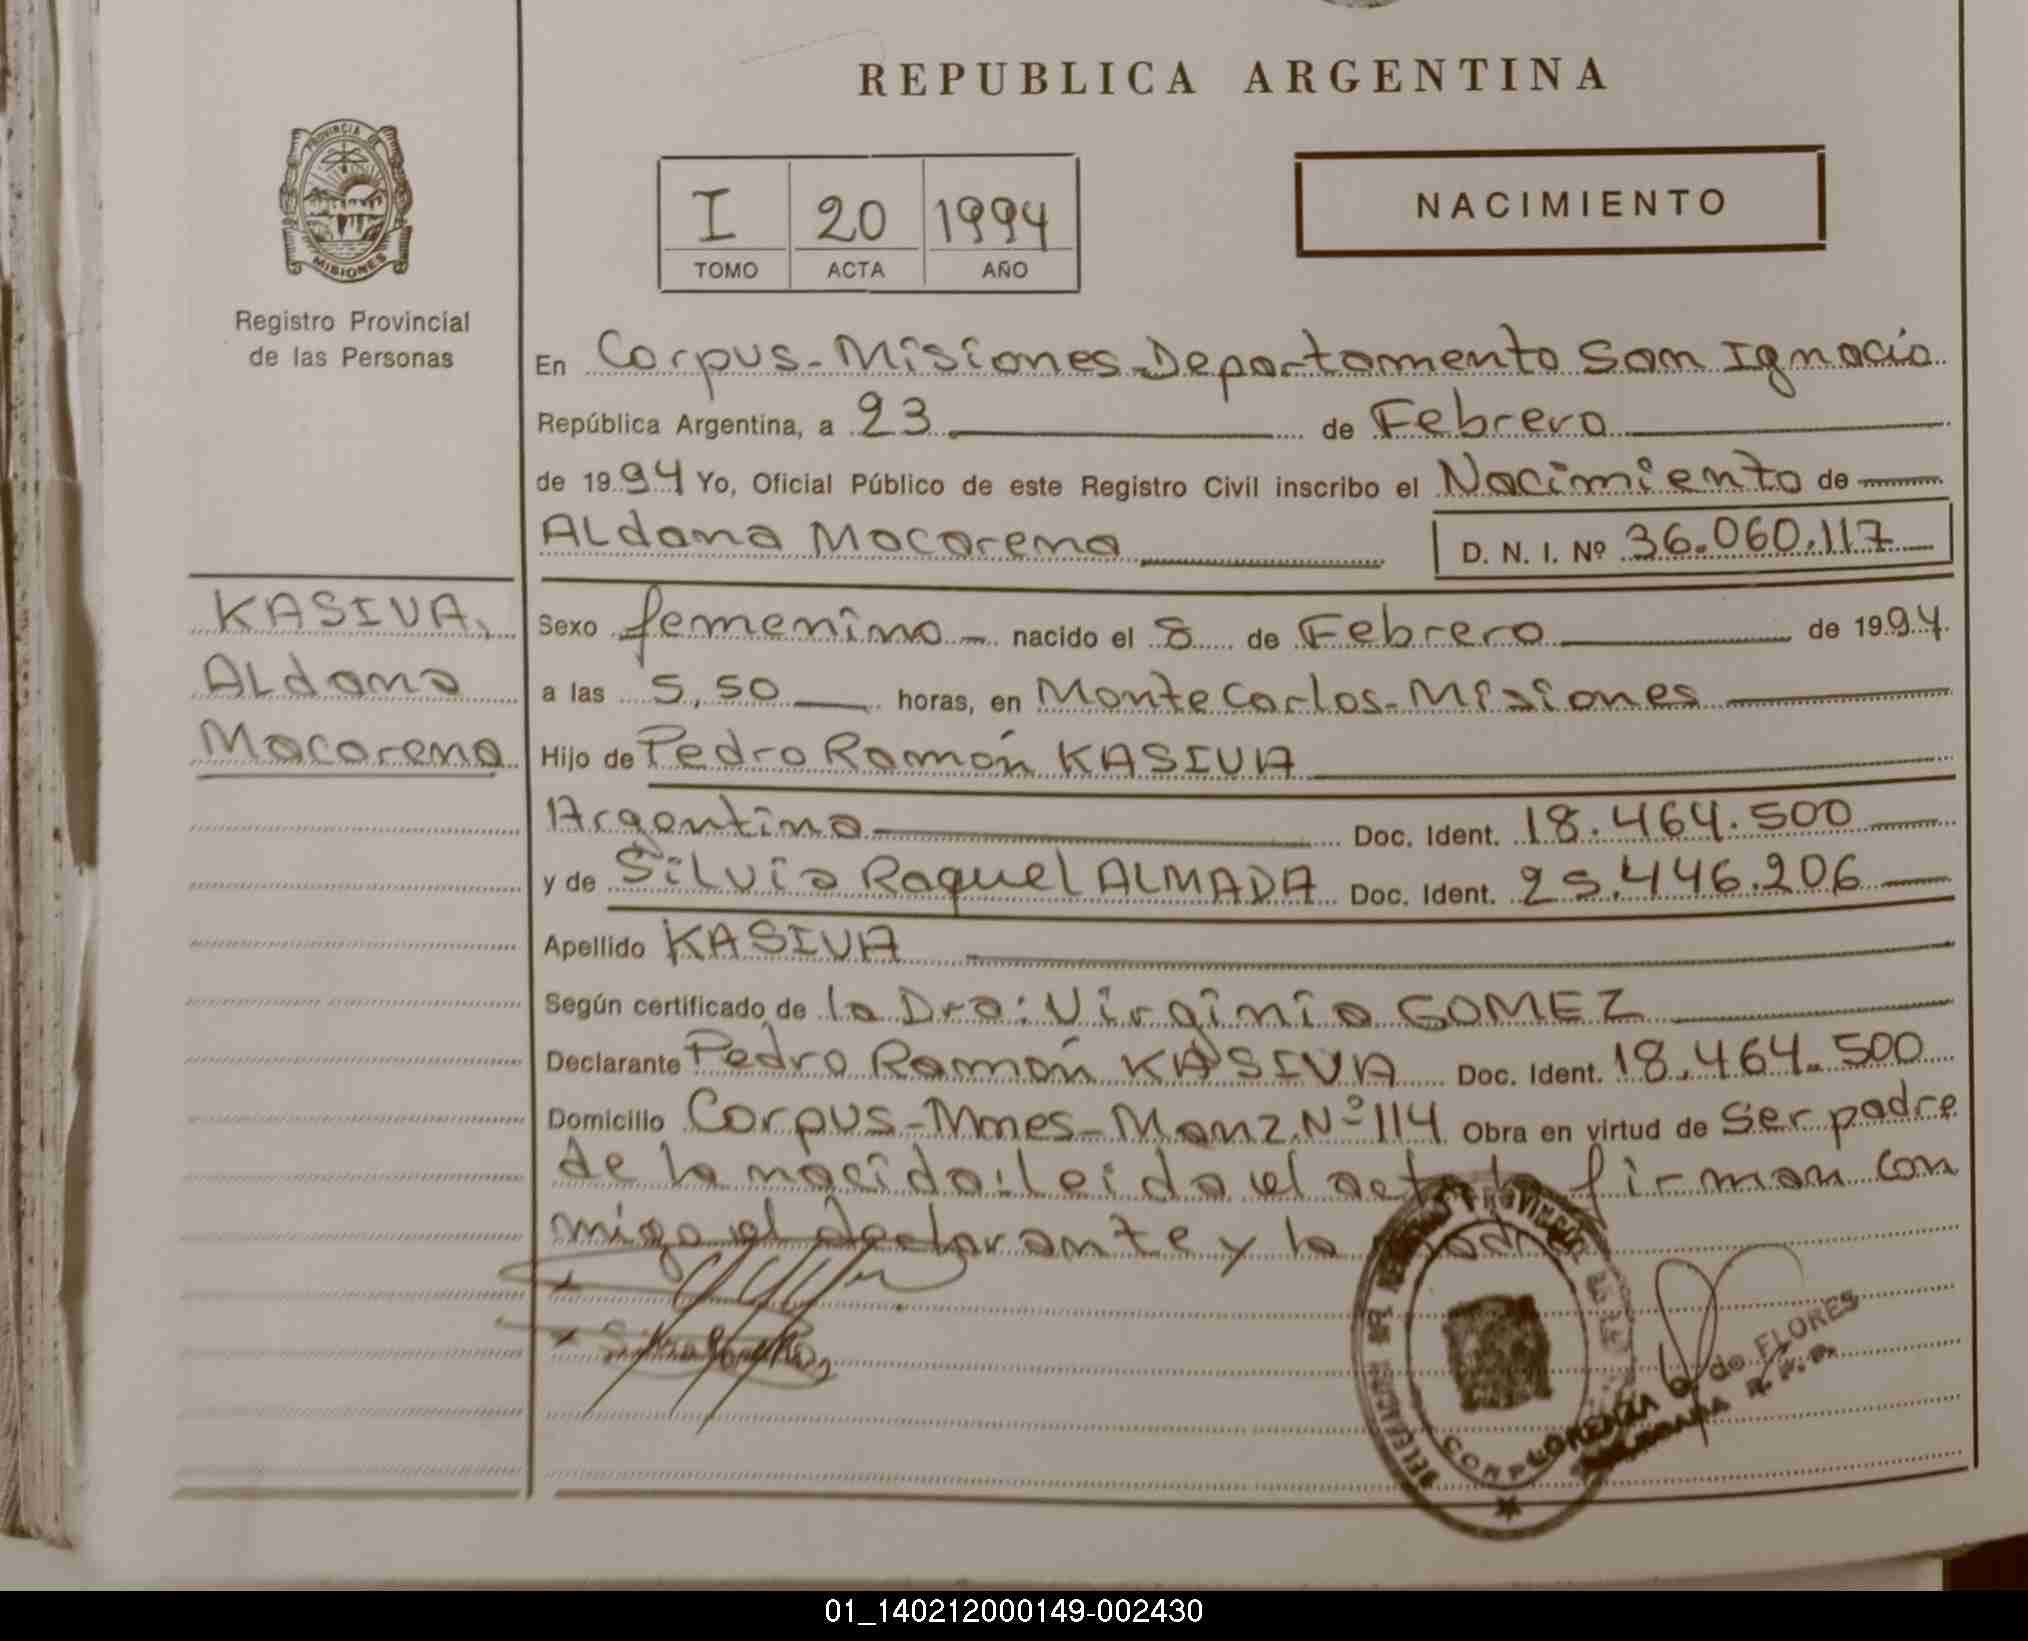 REPUBLICA ARGENTINA
PROVINCIA DE
MISIONES
Registro Provincial
de las Personas
I 20 1994
TOMO ACTA AÑO
NACIMIENTO
En Corpus-Misiones-Departamento San Ignacio
República Argentina, a 23 de Febrero
de 1994 Yo, Oficial Público de este Registro Civil inscribo el Nacimiento de
Aldana Macarena D. N. I. Nº 36.060.117
KASIVA,
Aldana
Macarena
Sexo femenino nacido el 8 de Febrero de 1994.
a las 5,50 horas, en Montecarlos-Misiones
Hijo de Pedro Ramón KASIVA
Argentina Doc. Ident. 18.464.500
y de Silvia Raquel ALMADA Doc. Ident. 25.446.206
Apellido KASIVA
Según certificado de la Dra: Virginia GOMEZ
Declarante Pedro Ramón KASIVA Doc. Ident. 18.464.500
Domicilio Corpus-Mnes-Manz.Nº114 Obra en virtud de Ser padre
de la nacida: leida el acta la firman con
migo el declarante y la madre
LORENZA de FLORES
01_140212000149-002430